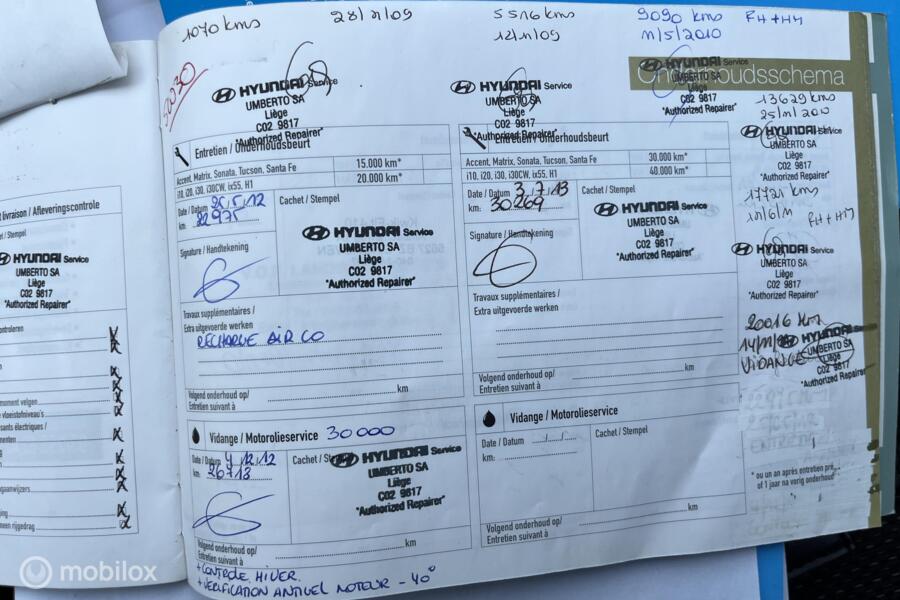 1070 kms
5516 kms
12/11/09
9090 kms
11/5/2010
FH + HM
Onderhoudsschema
HYUNDAI Service
UMBERTO SA
Liège
C02 9817
"Authorized Repairer"
HYUNDAI Service
UMBERTO SA
Liège
C02 9817
"Authorized Repairer"
HYUNDAI Service
UMBERTO SA
Liège
C02 9817
"Authorized Repairer"
livraison / Afleveringscontrole
/ Stempel
HYUNDAI Service
UMBERTO SA
Liège
C02 9817
"Authorized Repairer"
controleren
moment velgen
vloeistofniveau's
sants électriques /
Entretien / Onderhoudsbeurt
Accent, Matrix, Sonata, Tucson, Santa Fe 15.000 km*
i10, i20, i30, i30CW, ix55, H1 20.000 km*
Date / Datum 25.5.12
km: 22975
Cachet / Stempel
HYUNDAI Service
UMBERTO SA
Liège
C02 9817
"Authorized Repairer"
Signature / Handtekening
Travaux supplémentaires /
Extra uitgevoerde werken
RECHARGE AIR CO
Volgend onderhoud op/ km
Entretien suivant à
Vidange / Motorolieservice 30000
Date / Datum 4.12.12
km: 26713
Cachet / Stempel
HYUNDAI Service
UMBERTO SA
Liège
C02 9817
"Authorized Repairer"
Volgend onderhoud op/ km
Entretien suivant à
+ CONTROLE HIVER.
+ VERIFICATION ANTIGEL MOTEUR - 40°
Entretien / Onderhoudsbeurt
Accent, Matrix, Sonata, Tucson, Santa Fe 30.000 km*
i10, i20, i30, i30CW, ix55, H1 40.000 km*
Date / Datum 3.7.13
km: 30269
Cachet / Stempel
HYUNDAI Service
UMBERTO SA
Liège
C02 9817
"Authorized Repairer"
Signature / Handtekening
Travaux supplémentaires /
Extra uitgevoerde werken
Volgend onderhoud op/ km
Entretien suivant à
Vidange / Motorolieservice
Date / Datum
km:
Cachet / Stempel
Volgend onderhoud op/ km
Entretien suivant à
13629 kms
HYUNDAI Service
UMBERTO SA
Liège
C02 9817
"Authorized Repairer"
17721 kms
FH + HM
HYUNDAI Service
UMBERTO SA
Liège
C02 9817
"Authorized Repairer"
20016 Km
VIDANGE
HYUNDAI Service
UMBERTO SA
Liège
C02 9817
"Authorized Repairer"
* ou un an après entretien
of 1 jaar na vorig onderhoud
mobilox